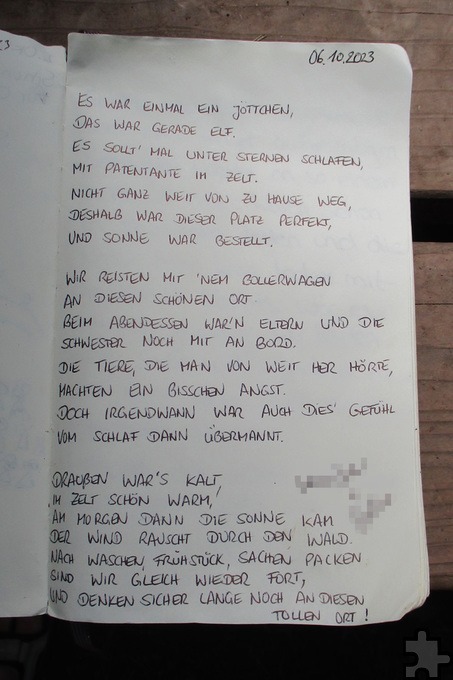 06.10.2023
ES WAR EINMAL EIN JÖTTCHEN,
DAS WAR GERADE ELF.
ES SOLLT' MAL UNTER STERNEN SCHLAFEN,
MIT PATENTANTE IM ZELT.
NICHT GANZ WEIT VON ZU HAUSE WEG,
DESHALB WAR DIESER PLATZ PERFEKT,
UND SONNE WAR BESTELLT.
WIR REISTEN MIT 'NEM BOLLERWAGEN
AN DIESEN SCHÖNEN ORT
BEIM ABENDESSEN WAR'N ELTERN UND DIE
SCHWESTER NOCH MIT AN BORD.
DIE TIERE, DIE MAN VON WEIT HER HÖRTE,
MACHTEN EIN BISSCHEN ANGST.
DOCH IRGENDWANN WAR AUCH DIES' GEFÜHL
VOM SCHLAF DANN ÜBERMANNT.
DRAUßEN WAR'S KALT,
IM ZELT SCHÖN WARM,
AM MORGEN DANN DIE SONNE KAM
DER WIND RAUSCHT DURCH DEN WALD.
NACH WASCHEN, FRÜHSTÜCK, SACHEN PACKEN
SIND WIR GLEICH WIEDER FORT,
UND DENKEN SICHER LANGE NOCH AN DIESEN
TOLLEN ORT!